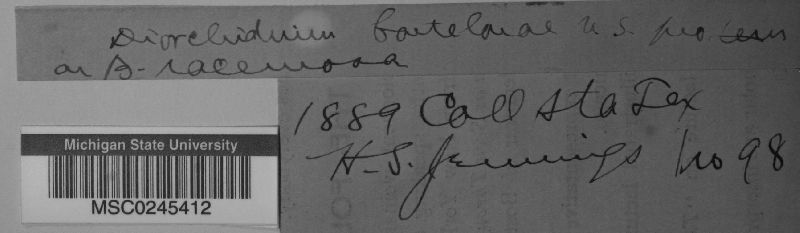 Diorchidium boutelouae n. s. pro. tem
on B. racemosa
1889 Coll Sta Tex
H. S. Jennings No 98
Michigan State University
MSC0245412